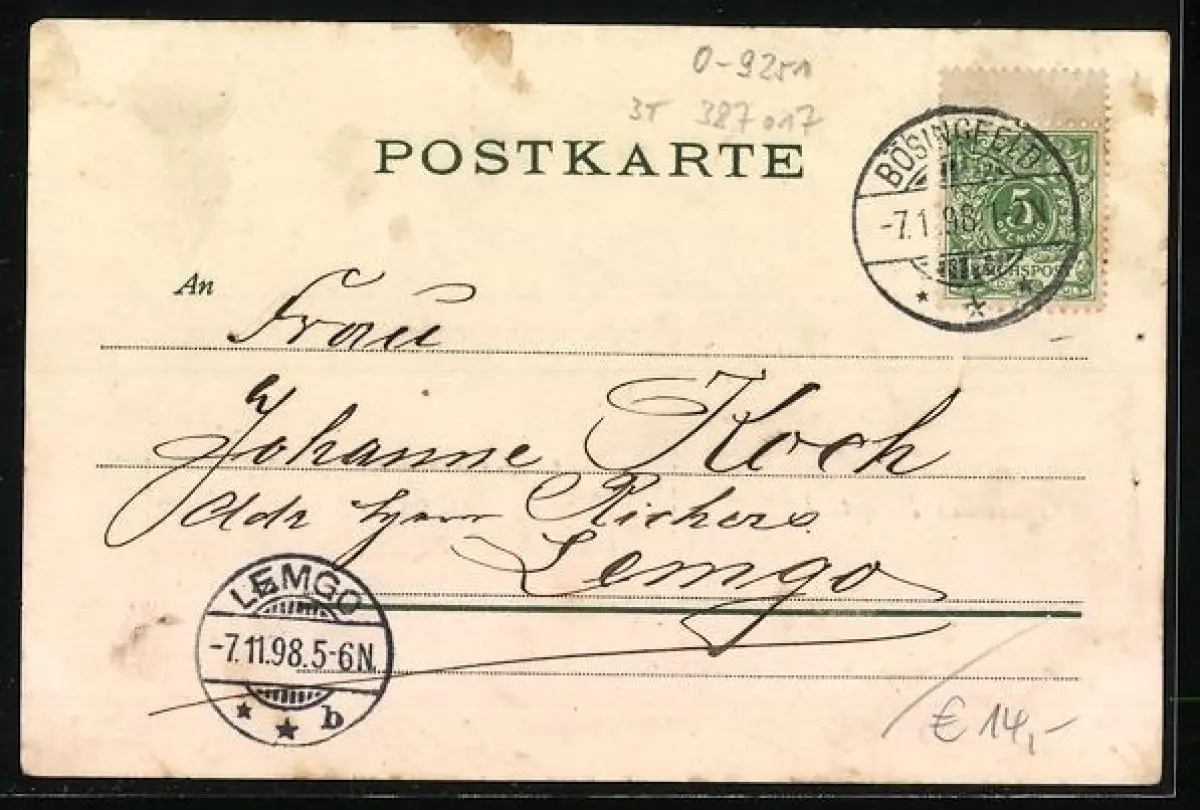 0-9251
3T 387 017
POSTKARTE
BÖSINGFELD
-7.11.98. 1-2N
5
PFENNIG
REICHSPOST
An Frau
Johanne Koch
Adr Herrn Richers
Lemgo
LEMGO
-7.11.98.5-6N.
* * b
€ 14,-